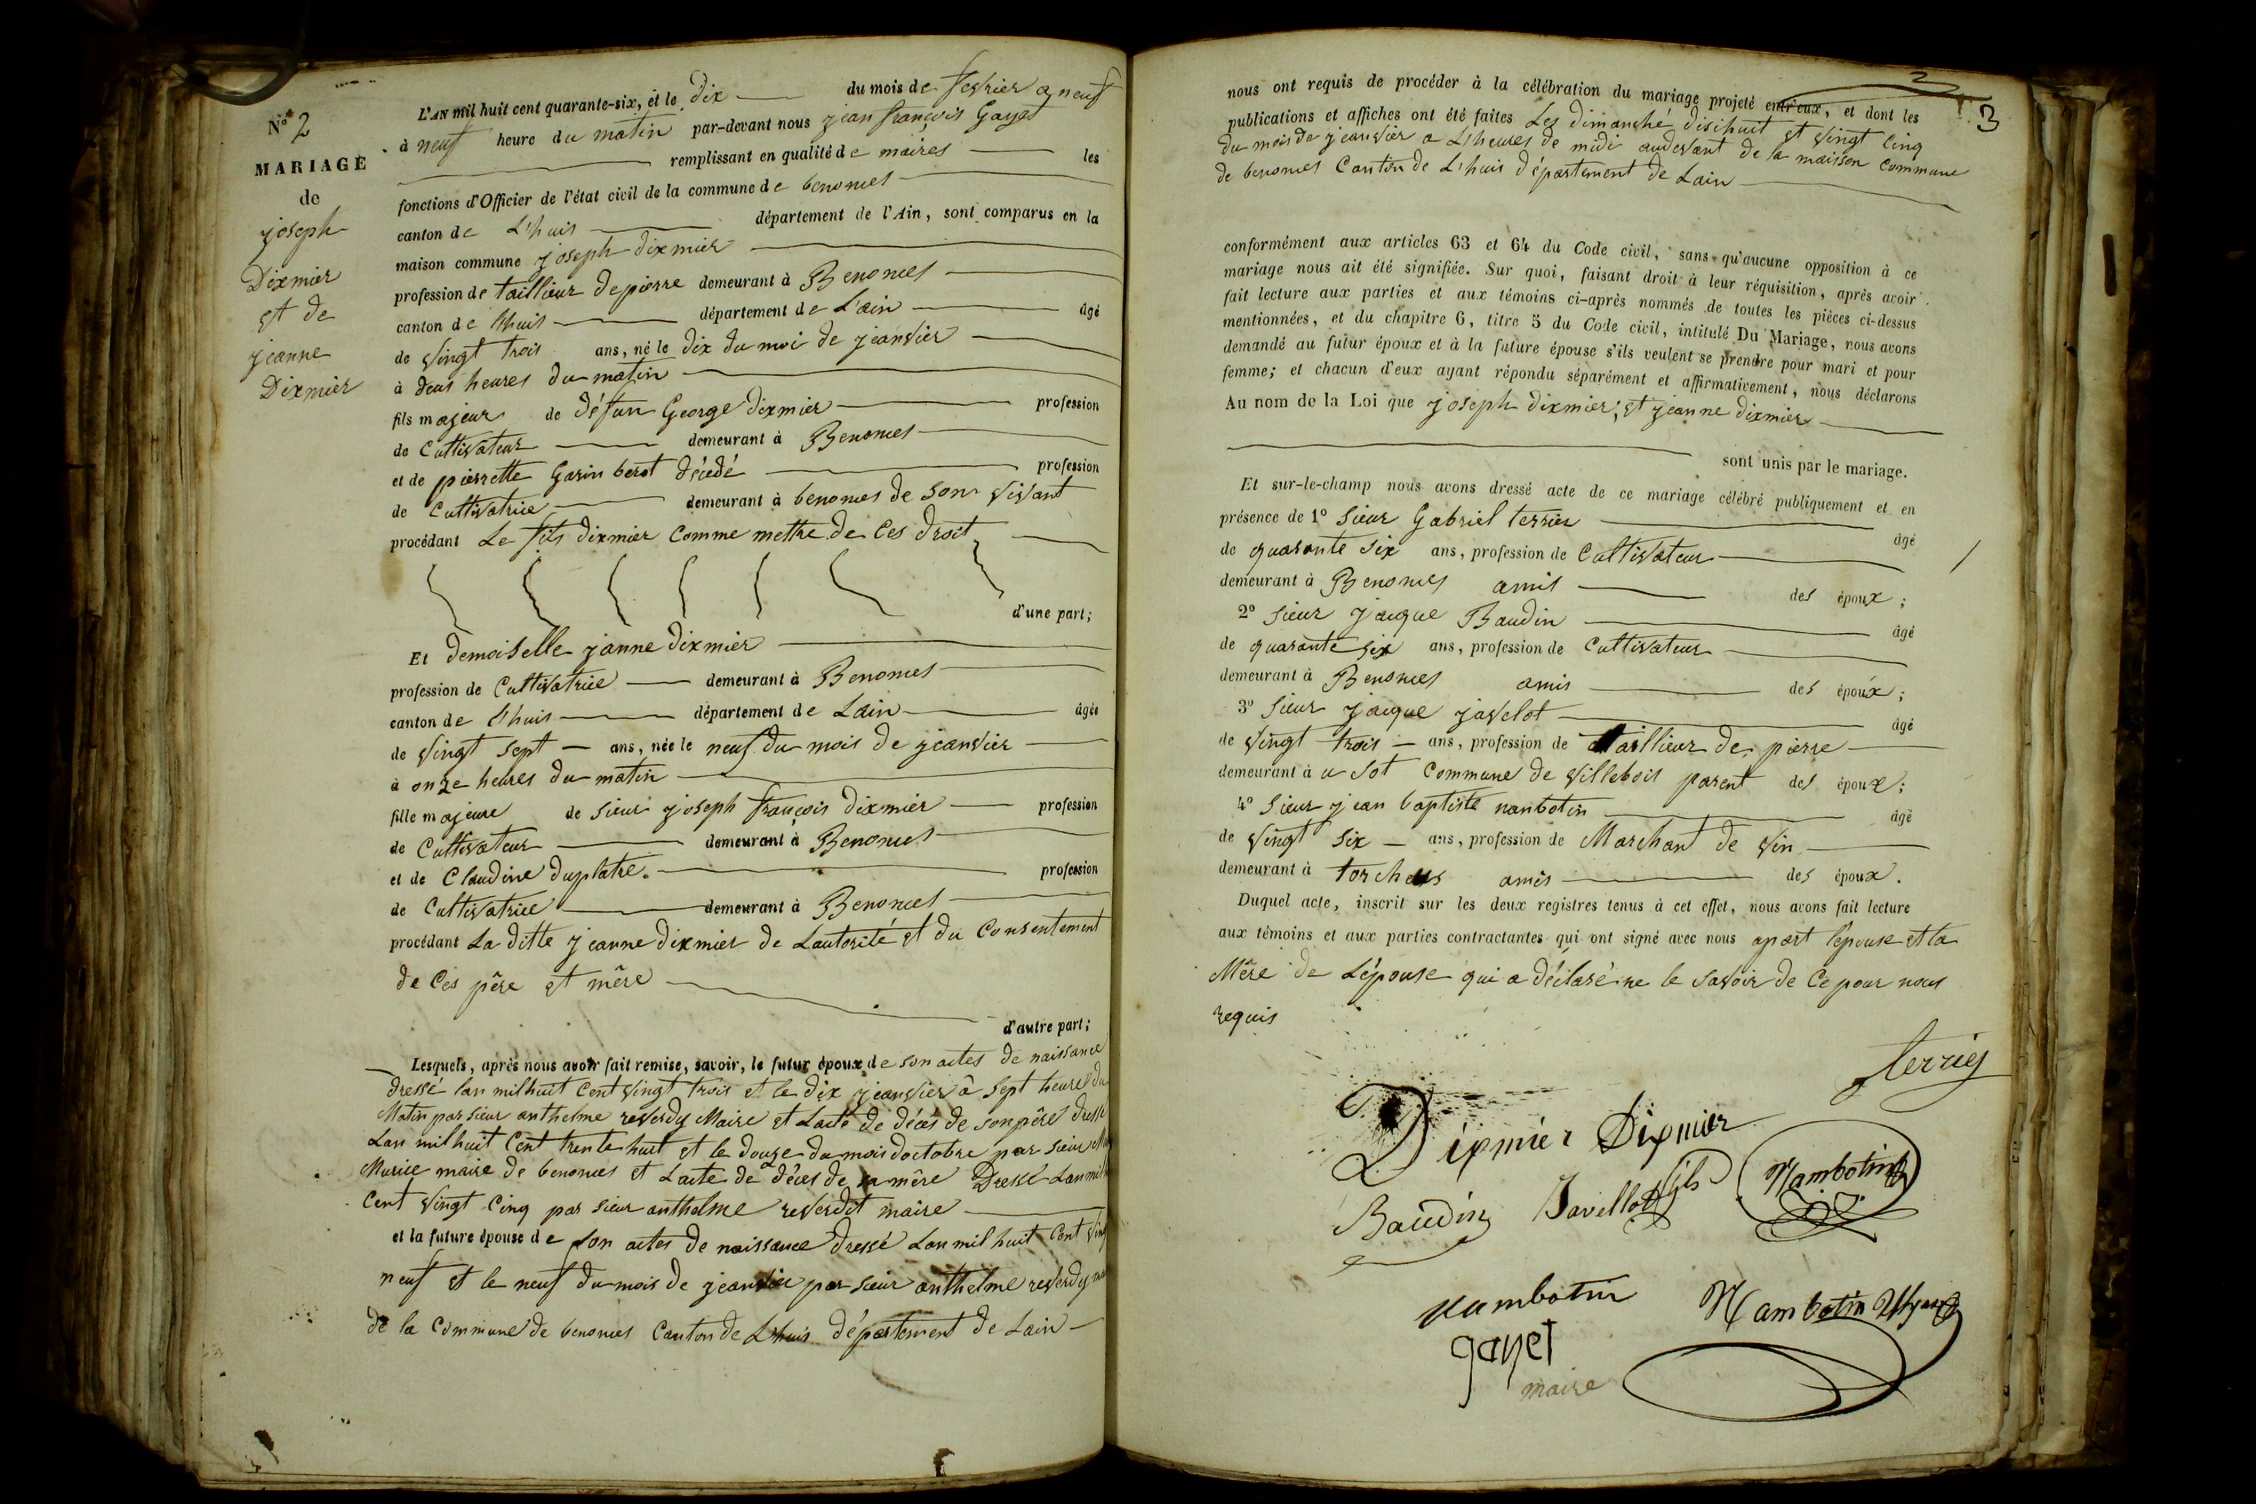 N° 2
MARIAGE
de
joseph
Dixmier
et de
jeanne
Dixmier
L'AN mil huit cent quarante-six, et le dix du mois de fevrier a neuf
à neuf heure du matin par-devant nous jean françois Gayet
remplissant en qualité de maires les
fonctions d'Officier de l'état civil de la commune de benonces
canton de L'huis département de l'Ain, sont comparus en la
maison commune joseph dixmier
profession de taillieur de pierre demeurant à Benonces
canton de lhuis département de L'ain âgé
de vingt trois ans, né le dix du moi de jeanvier
à deus heures du matin
fils majeur de défun George dixmier profession
de Cultivateur demeurant à Benonces
et de pierrette Garin berot décédé profession
de Cultivatrice demeurant à benonces de son vivant
procédant Le fils dixmier Comme mettre de Ces droit
d'une part;
Et demoiselle janne dixmier
profession de Cultivatrice demeurant à Benonces
canton de l'huis département de Lain âgée
de vingt sept ans, née le neuf du mois de jeanvier
à onze heures du matin
fille majeure de sieur joseph françois dixmier profession
de Cultivateur demeurant à Benonces
et de Claudine duplatre. profession
de Cultivatrice demeurant à Benonces
procédant La ditte jeanne dixmier de Lautorité et du Consentement
de Ces père et mère
d'autre part;
Lesquels, après nous avoir fait remise, savoir, le futur époux de son actes de naissance
dressé lan milhuit Cent vingt trois et le dix jeanvier à sept heure du
Matin par sieur anthelme reverdy Maire et Lacte de décès de son père dressé
Lan milhuit Cent trente huit et le douze du mois doctobre par sieur
Murice maire de benonces et Lacte de décès de sa mère Dressé Lan mil
Cent vingt Cinq par sieur anthelme reverdit maire
et la future épouse de son actes de naissance dressé Lan mil huit Cent ving
neuf et le neuf du mois de jeanvier par sieur anthelme reverdy
de la Commune de benonces Canton de L'huis département de Lain
2
3
nous ont requis de procéder à la célébration du mariage projeté entr'eux, et dont les
publications et affiches ont été faites Les dimanche disihuit et vingt Cinq
du mois de jeanvier a L'heures de midi audevant de la maison Commune
de benonces Canton de L'huis département de Lain
conformément aux articles 63 et 64 du Code civil, sans qu'aucune opposition à ce
mariage nous ait été signifiée. Sur quoi, faisant droit à leur réquisition, après avoir
fait lecture aux parties et aux témoins ci-après nommés de toutes les pièces ci-dessus
mentionnées, et du chapitre 6, titre 5 du Code civil, intitulé Du Mariage, nous avons
demandé au futur époux et à la future épouse s'ils veulent se prendre pour mari et pour
femme; et chacun d'eux ayant répondu séparément et affirmativement, nous déclarons
Au nom de la Loi que joseph dixmier; et jeanne dixmier
sont unis par le mariage.
Et sur-le-champ nous avons dressé acte de ce mariage célébré publiquement et en
présence de 1° sieur Gabriel terrier âgé
de quarante six ans, profession de Cultivateur
demeurant à Benonces amis des époux;
2° sieur jacque Baudin âgé
de quarante six ans, profession de Cultivateur
demeurant à Benonces amis des époux;
3° sieur jacque javelot âgé
de vingt trois ans, profession de taillieur de pierre
demeurant à u sot Commune de villebois parent des époux;
4° sieur jean baptiste nanbotin âgé
de vingt six ans, profession de Marchant de vin
demeurant à torcheus amis des époux.
Duquel acte, inscrit sur les deux registres tenus à cet effet, nous avons fait lecture
aux témoins et aux parties contractantes qui ont signé avec nous apart l'épouse et la
Mère de Lépouse qui a déclaré ne le savoir de Ce pour nous
requis
terrier
Dixmier Dixmier
Baudin Javellot fils Nambotin
nambotin Nambotin
gayet
maire